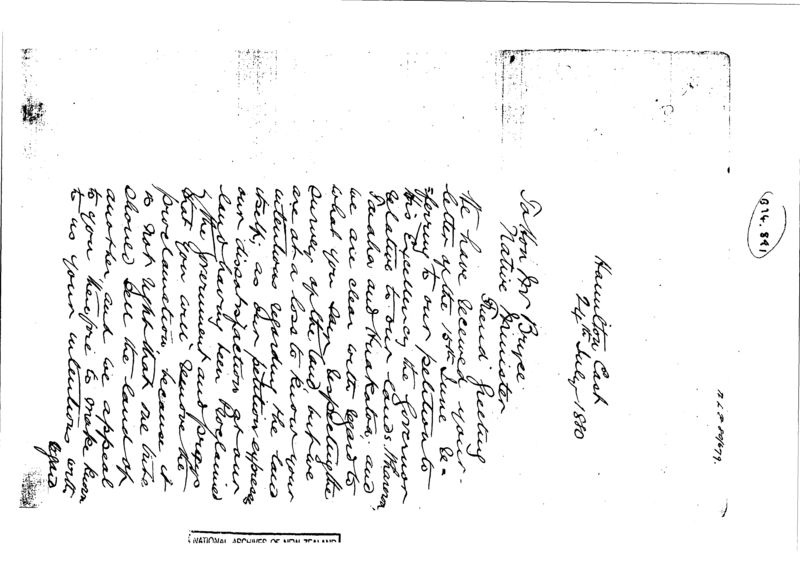 G14. 841
N.L.P. 80/679.
Hamilton East
24th July 1880
To Hon Mr Bryce
Native Minister
Friend Greeting
We have received your
letter of the 15th June re=
ferring to our petition to
His Excellency the Governor
relative to our lands
and and
we are clear with regard to
what you say respecting the
survey of the land but we
are at a loss to know your
intentions regarding the land
itself, as our petition express
our dissatisfaction at our
land having been Proclaimed
by the Government and prays
that you will remove the
proclamation because it
is not right that one tribe
should sell the land of
another, and we appeal
to you therefore to make known
to us your intentions with
regard
NATIONAL ARCHIVES OF NEW ZEALAND